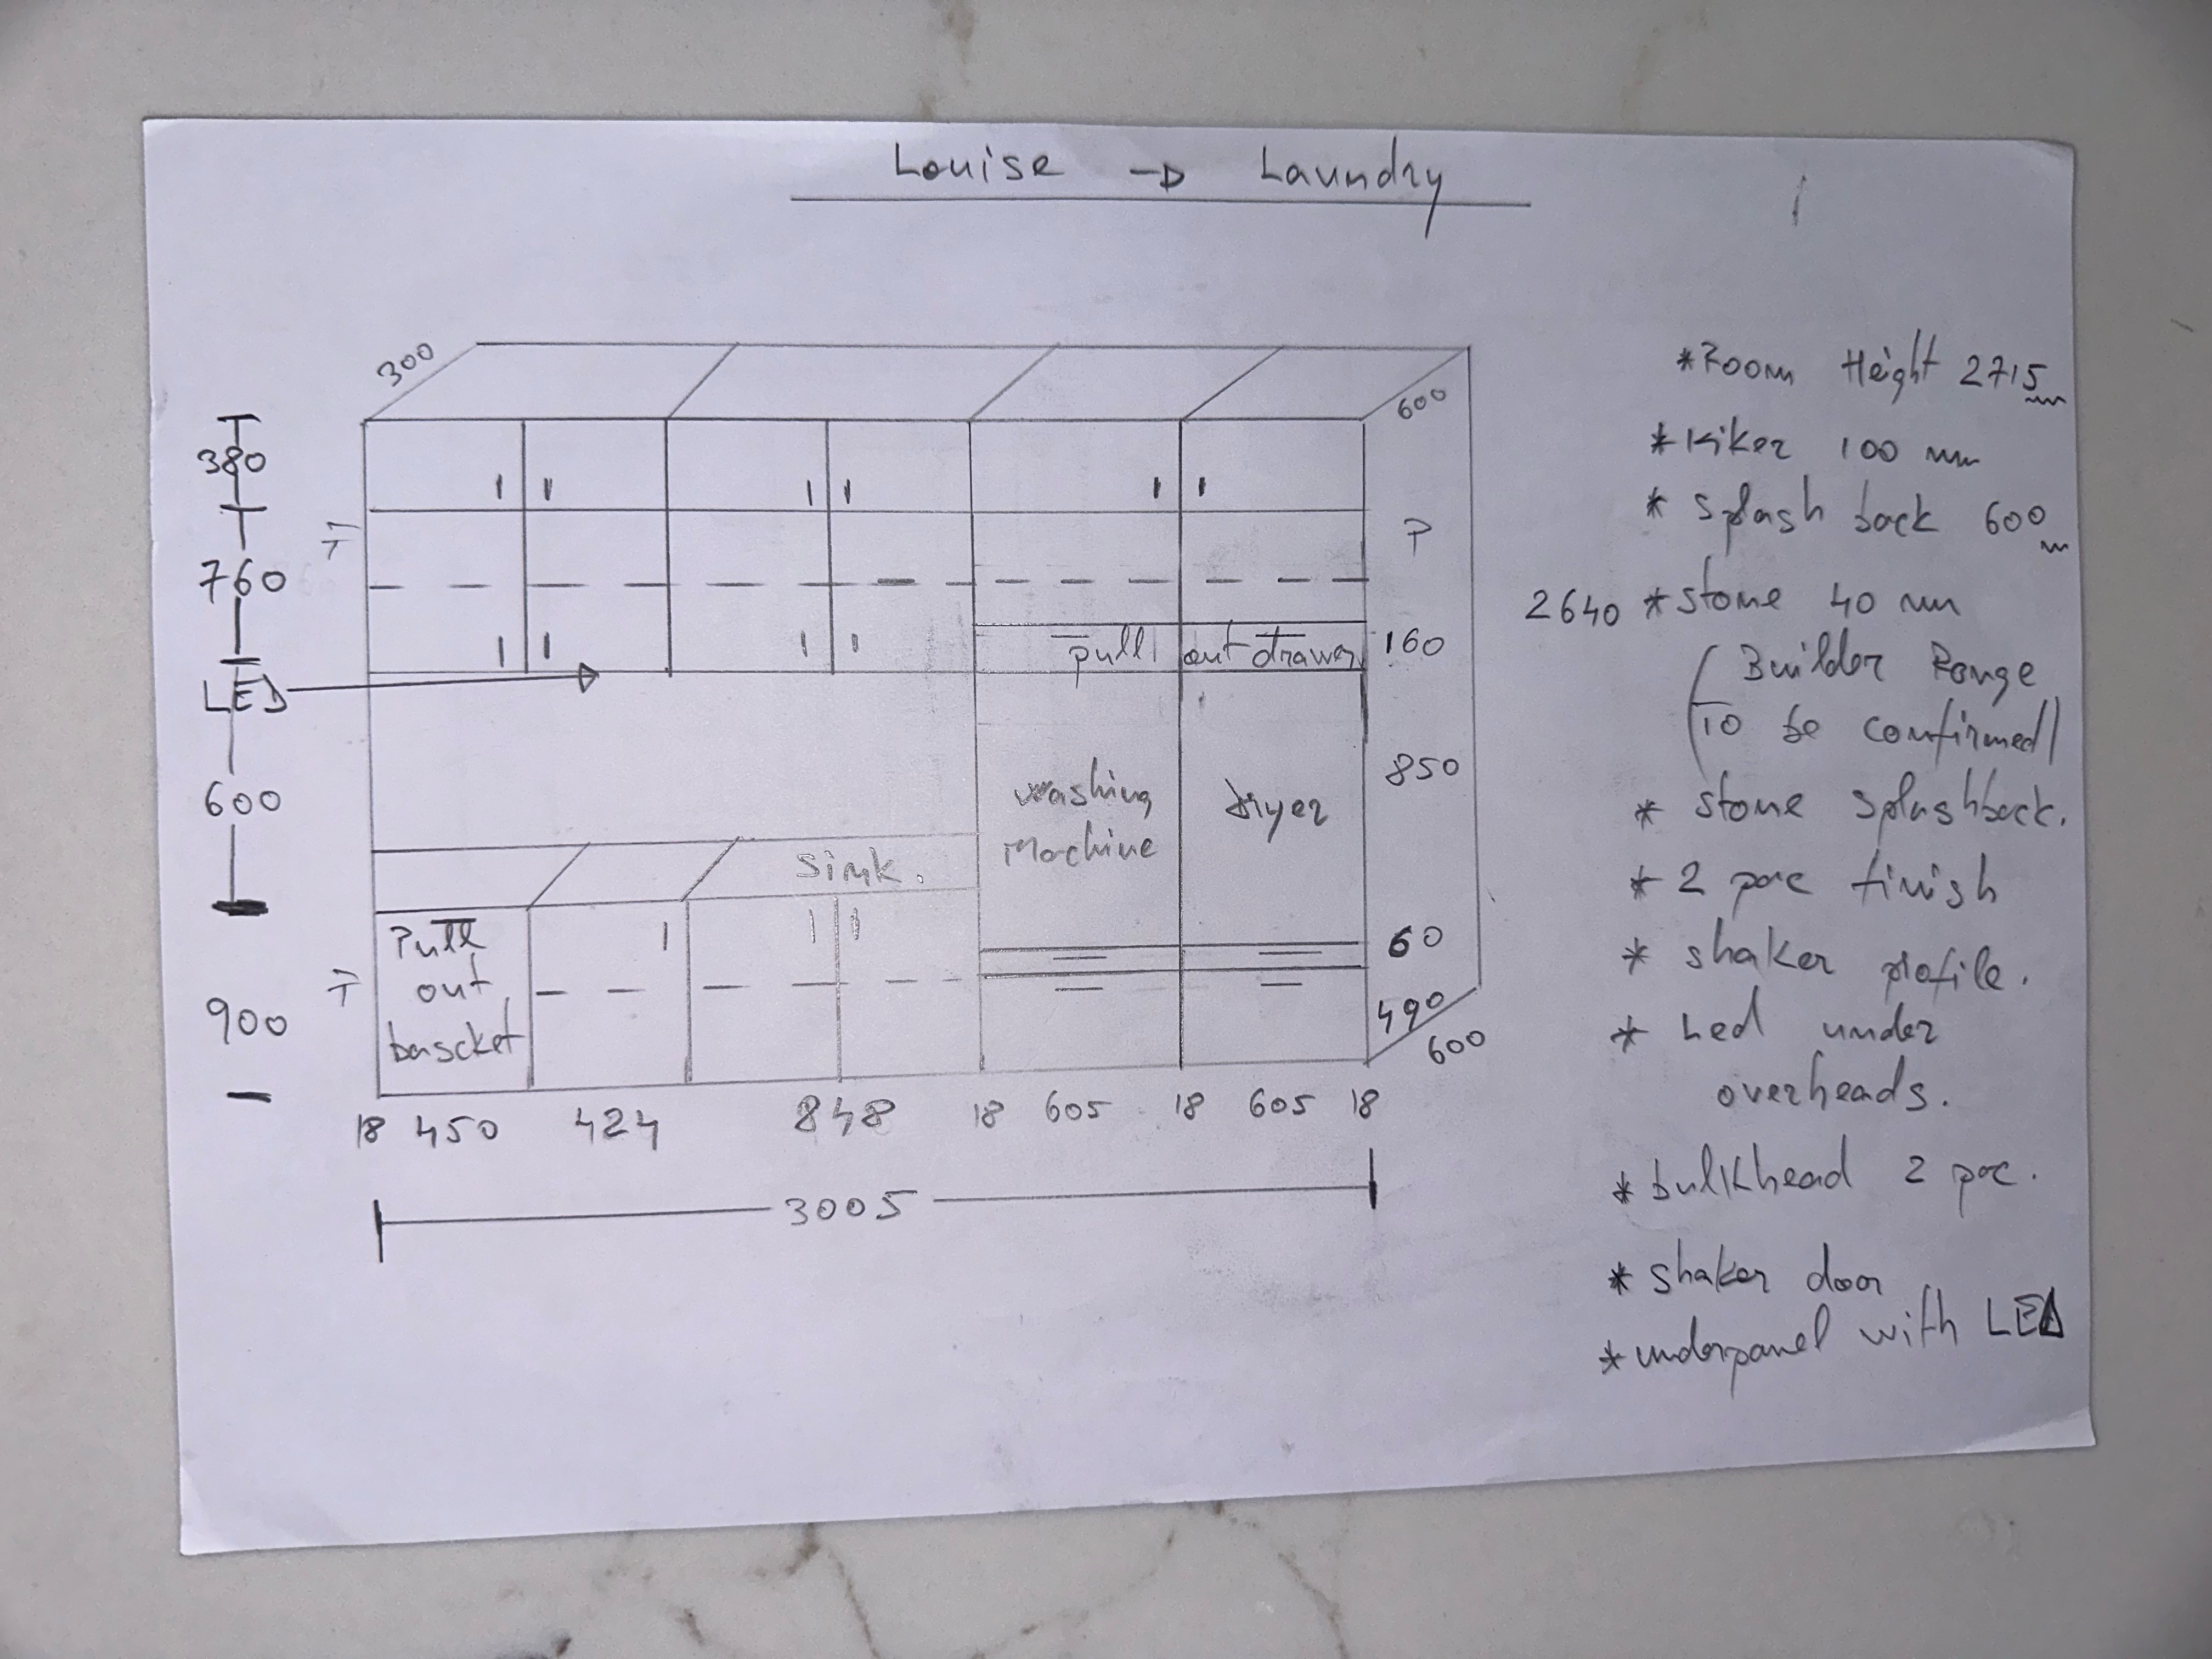 Louise → Laundry
300
600
380
760
LED
600
900
pull out drawer
160
850
washing
Machine
dryer
Sink.
Pull
out
bascket
60
490
600
18 450 424 848 18 605 18 605 18
3005
*Room Height 2715
*Kiker 100 mm
* splash back 600
2640 *stone 40 mm
(Builder Range
To be confirmed)
* stone splashback.
* 2 pac finish
* shaker profile.
* Led under
overheads.
* bulkhead 2 pac.
* shaker door
*underpanel with LED